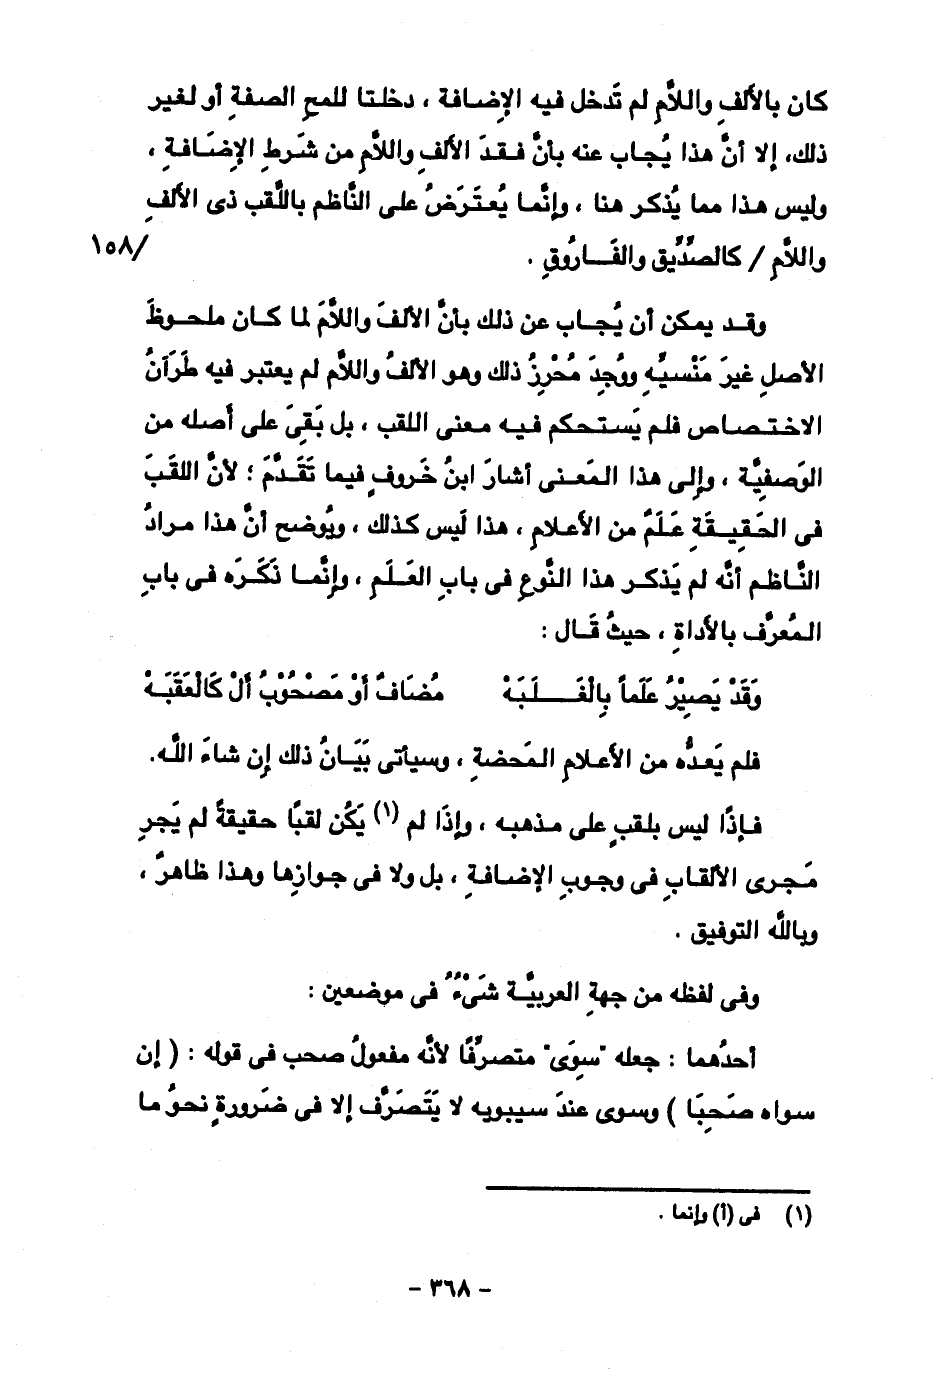 كان بالألفِ واللاَّمِ لم تُدخل فيه الإِضافة ، دخلتا للمح الصفةِ أو لغير
ذلك، إلا أنَّ هذا يُجاب عنه بأنَّ فقدَ الألفِ واللاَّمِ من شَرطِ الإِضَافةِ ،
وليس هذا مما يُذكر هنا ، وإنَّما يُعتَرَضُ على النَّاظم باللَّقب ذى الألفِ
واللاَّمِ / كالصِّدِّيق والفَاروُقِ . /١٥٨
وقد يمكن أن يُجاب عن ذلك بأنَّ الألفَ واللاَّمَ لما كان ملحوظَ
الأصلِ غيرَ مَنْسيٍّه ووُجِدَ مُحْرِزُ ذلك وهو الألفُ واللاَّم لم يعتبر فيه طَرَآنُ
الاختصاص فلم يَستحكم فيه معنى اللقب ، بل بَقِىَ على أصله من
الوَصفيَّة ، وإلى هذا المَعنى أشارَ ابنُ خَروفٍ فيما تَقَدَّمَ ؛ لأنَّ اللقَبَ
فى الحَقِيقَةِ عَلَمٌ من الأعلامِ ، هذا لَيس كذلك ، ويُوضح أنَّ هذا مرادُ
النَّاظم أنَّه لم يَذكر هذا النَّوع فى بابِ العَلَم ، وإنَّما ذَكَرَه فى بابِ
المُعرَّف بالأداةِ ، حيثُ قَال :
وَقَدْ يَصِيْرُ عَلَماً بِالْغَلَبَهْ مُضَافٌ أوْ مَصْحُوْبُ ألْ كَالْعَقَبَهْ
فلم يَعدُّه من الأعلامِ المَحضةِ ، وسيأتى بَيَانُ ذلك إن شاءَ اللَّه.
فإذًا ليس بلقبٍ على مذهبه ، وإذَا لم (١) يَكُن لقبًا حقيقةً لم يَجرِ
مَجرى الألقابِ فى وجوبِ الإِضافةِ ، بل ولا فى جوازِها وهذا ظاهرٌ ،
وباللَّه التوفيق .
وفى لفظه من جهةِ العربيَّة شَىْءٌ فى موضعين :
أحدُهما : جعله "سِوَى" متصرِّفًا لأنَّه مفعولُ صحب فى قوله : ( إن
سواه صَحِبَا ) وسوى عندَ سيبويه لا يَتَصَرَّف إلا فى ضَرورةٍ نحوُ ما
(١) فى (أ) وإنما .
- ٣٦٨ -